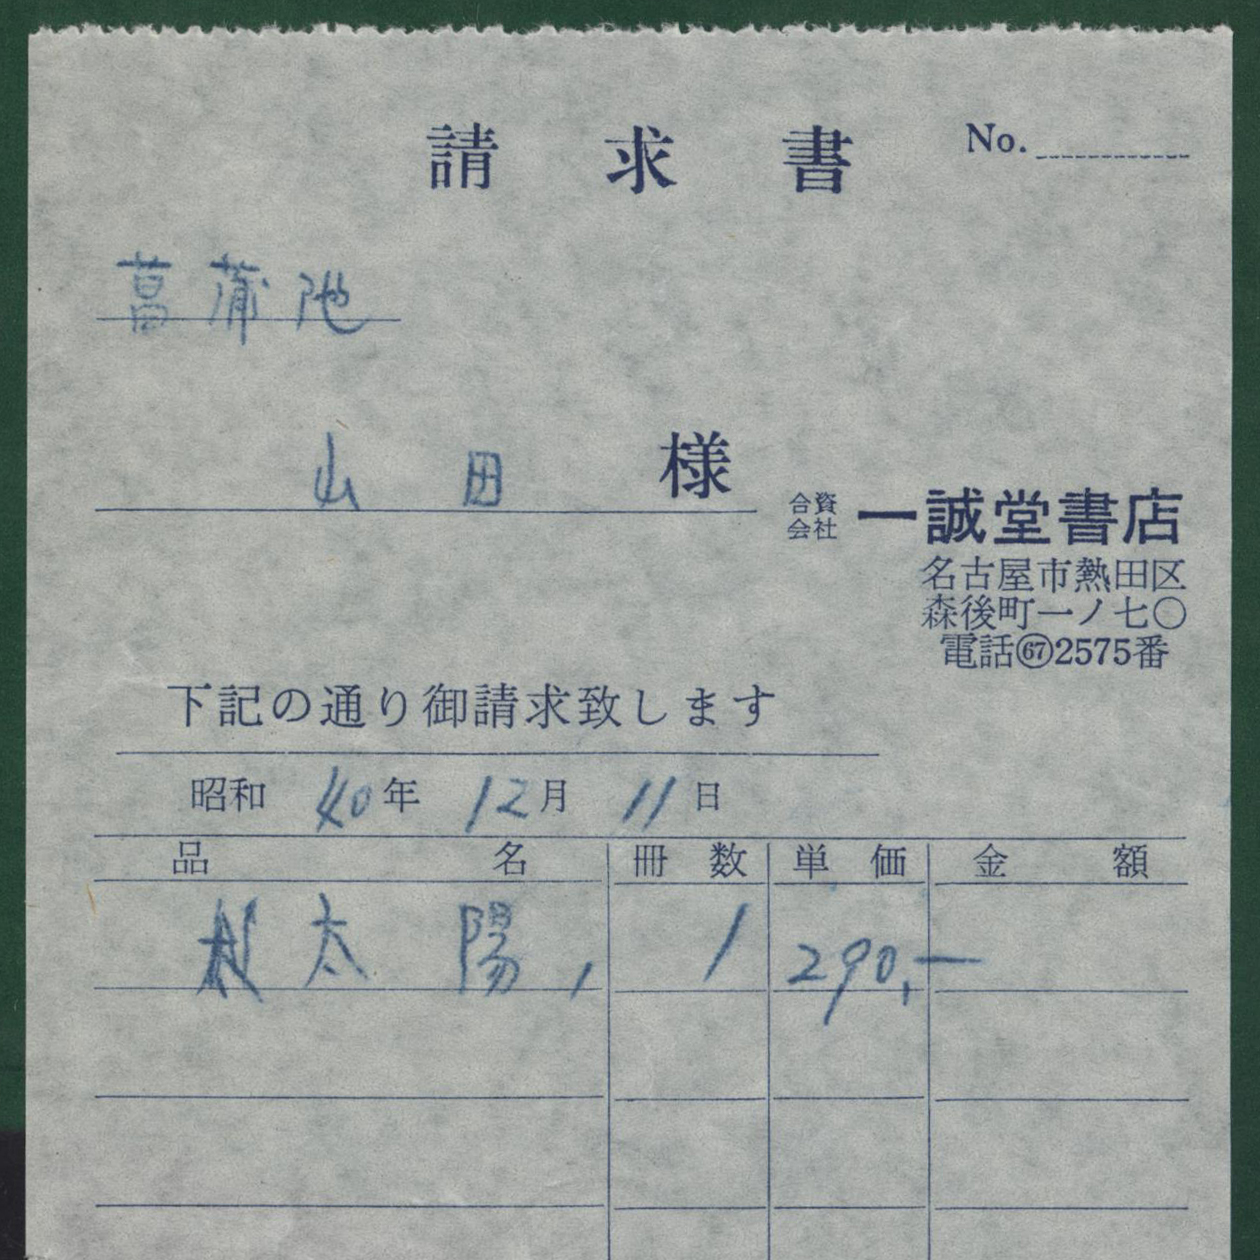 請求書 No.
菖蒲池
山田 様
合資会社 一誠堂書店
名古屋市熱田区
森後町一ノ七〇
電話㊿2575番
下記の通り御請求致します
昭和 40年 12月 11日
品名 冊数 単価 金額
太陽, 1 290,—